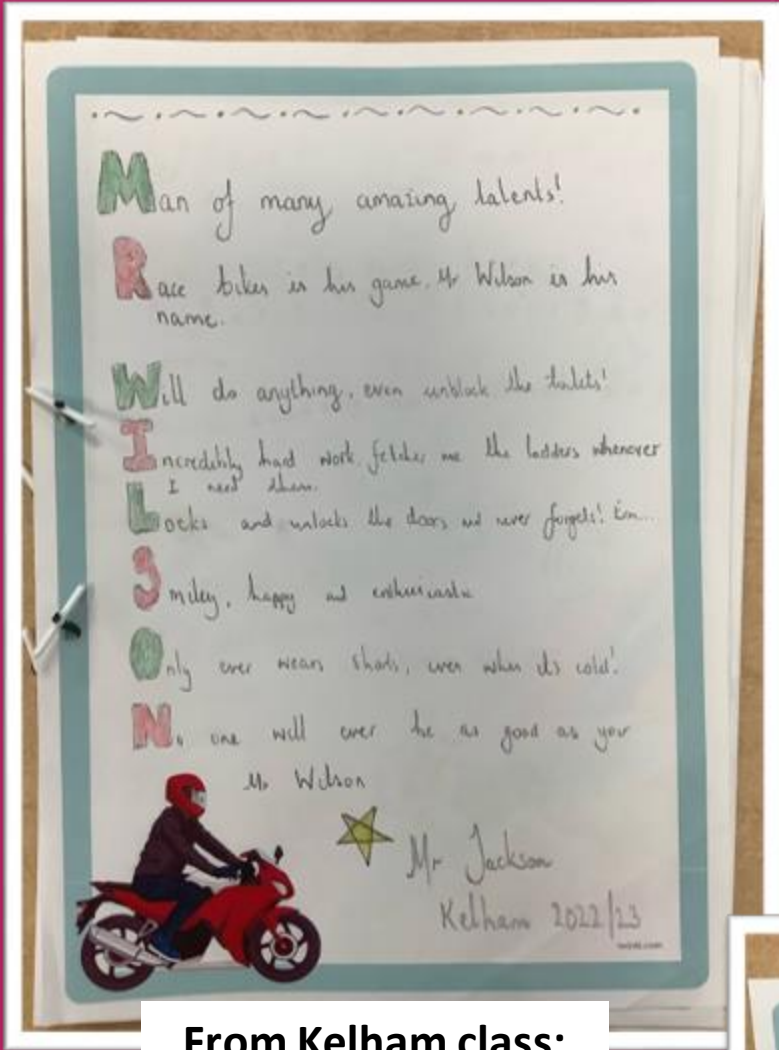 Man of many amazing talents!
Race bikes is his game. Mr Wilson is his
name.
Will do anything, even unblock the toilets!
Incredibly hard work, fetches me the ladders whenever
I need them.
Locks and unlocks the doors and never forgets!
Smiley, happy and
Only ever wears shorts, even when its cold!
No one will ever be as good as you
Mr Wilson
Mr Jackson
Kelham 2022/23
From Kelham class: